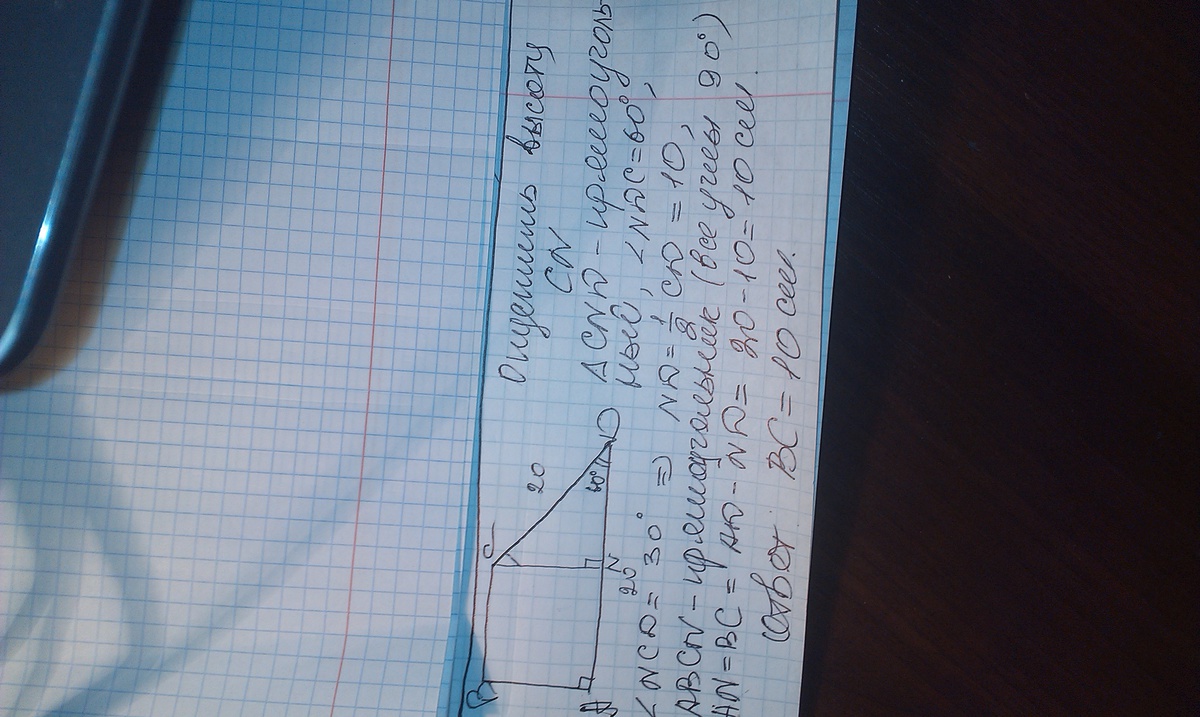 B
C
20
60°
D
A
20
N
Опустим высоту
CN
ΔCND - прямоуголь-
ный, <NDC=60°,
<NCD=30° => ND=1/2 CD=10,
ABCN - прямоугольник (все углы 90°)
AN=BC= AD-ND= 20-10=10 см.
Ответ: BC=10 см.